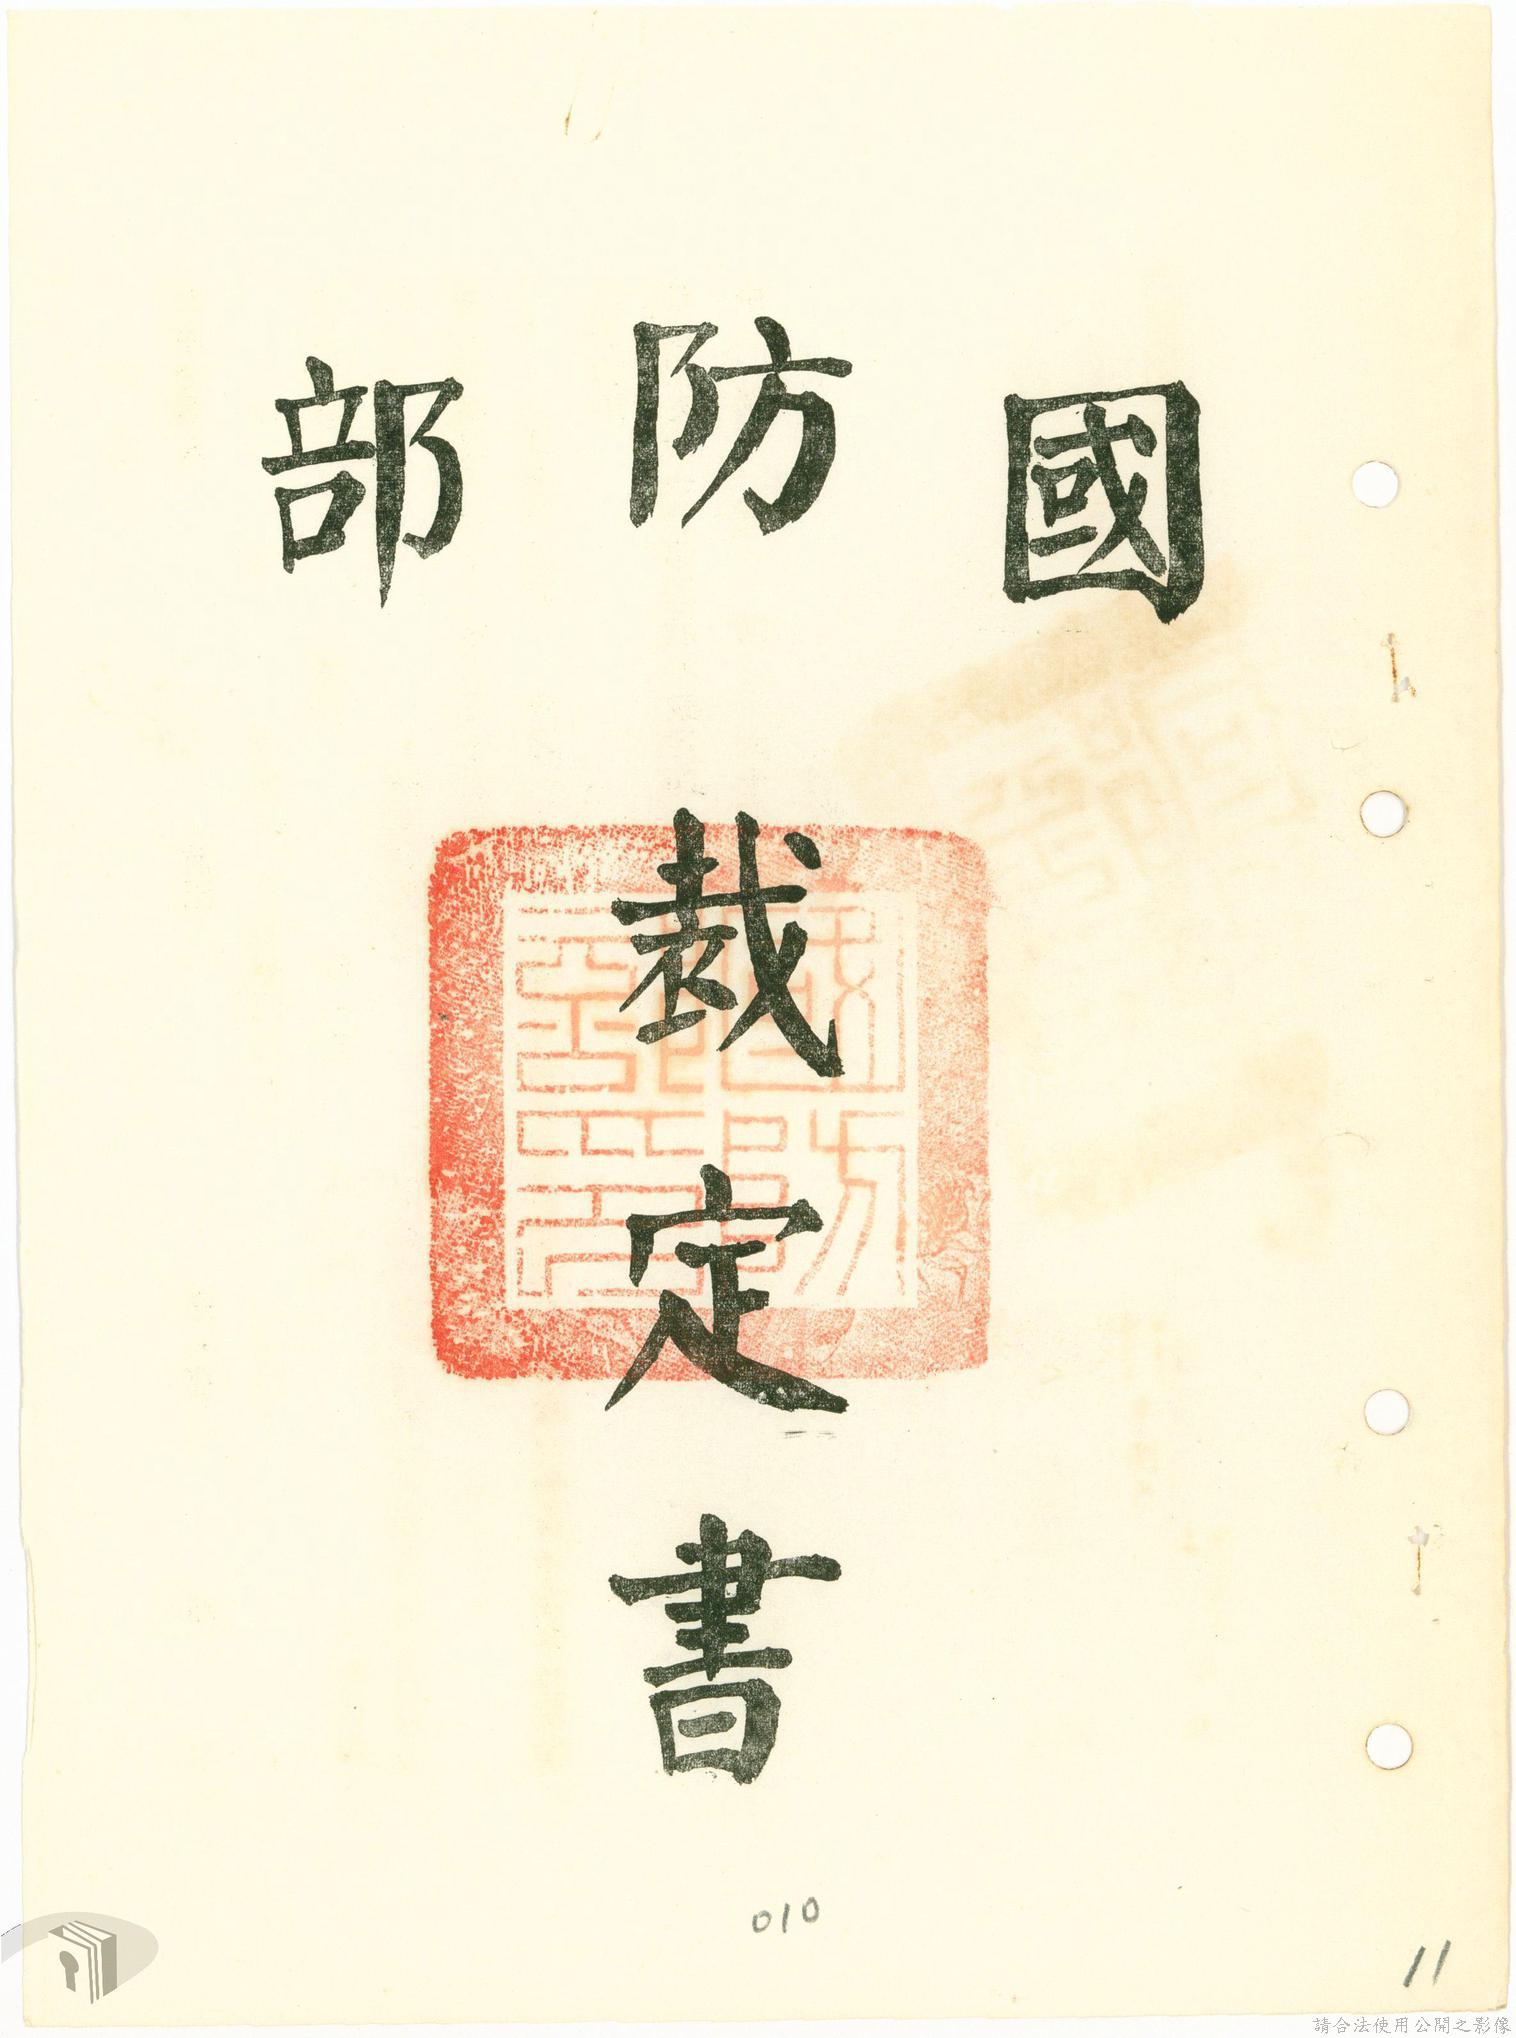 國防部
裁定書
010
11
請合法使用公開之影像